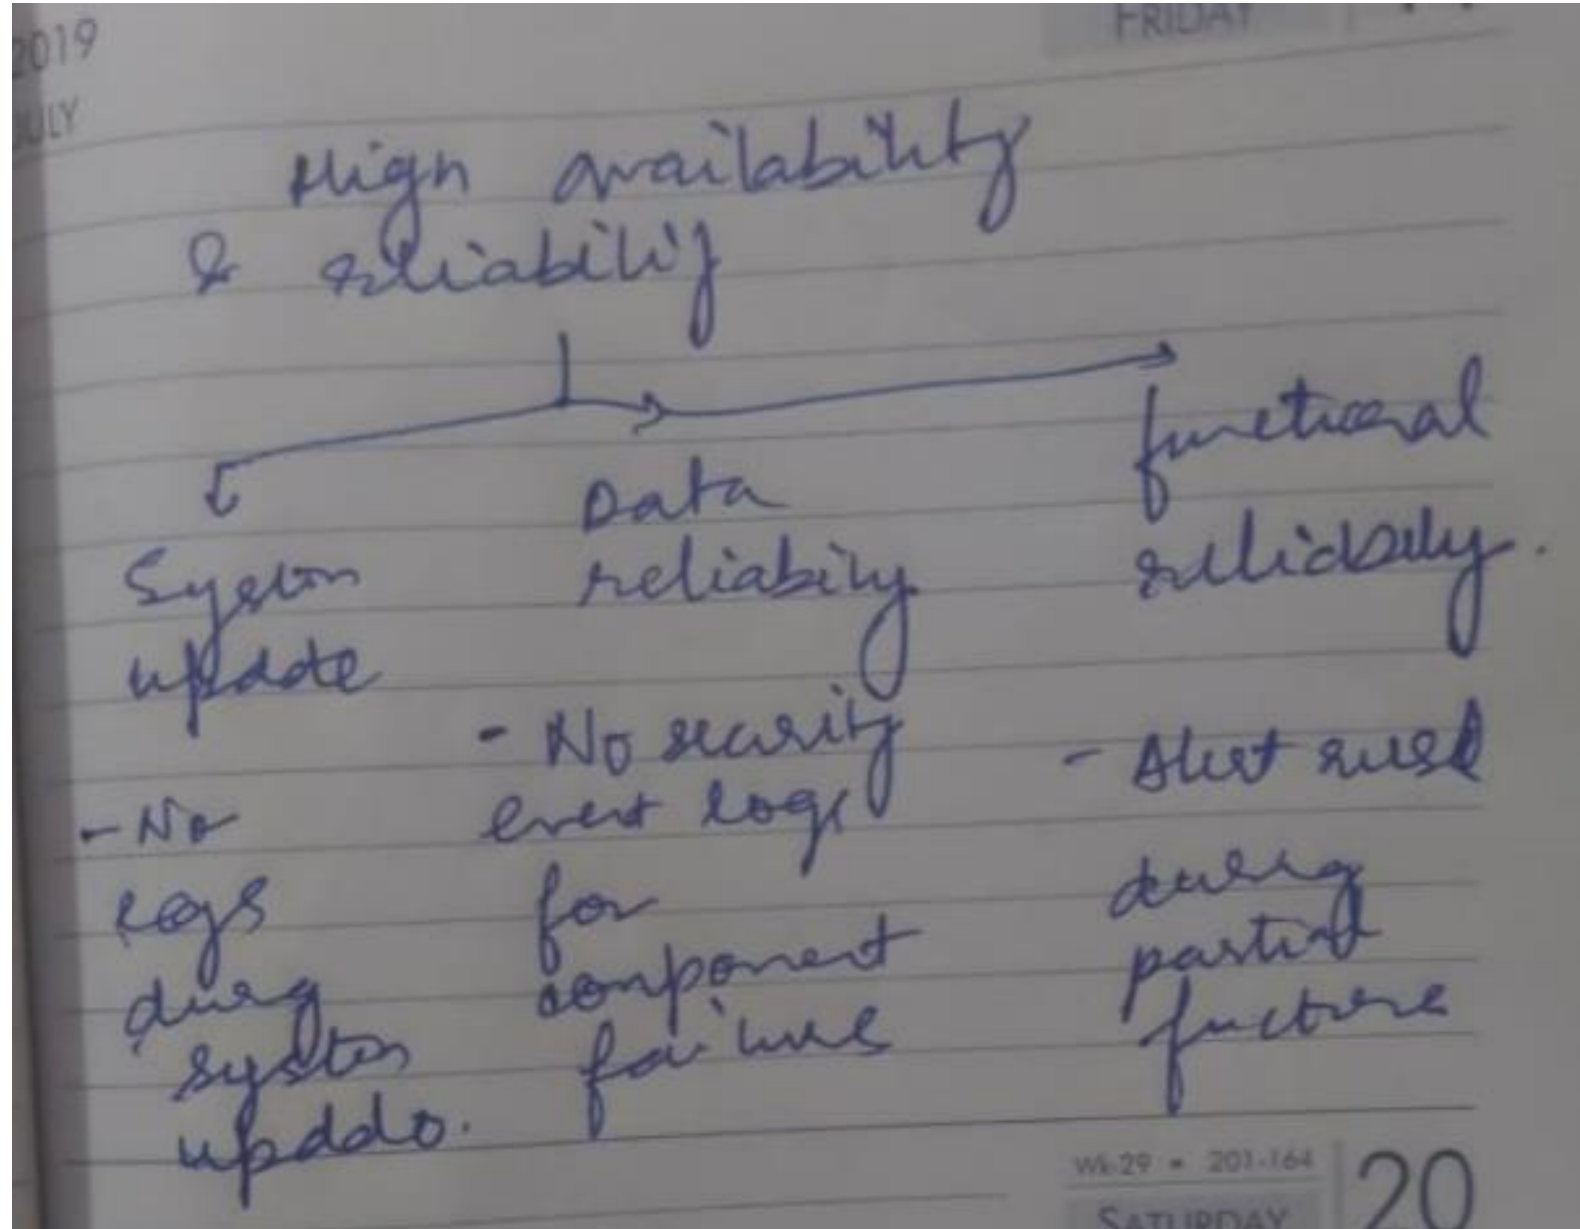 2019
JULY
FRIDAY
High availability
& reliability
System
update
- No
logs
during
system
update.
Data
reliability
- No security
event logs
for
component
failure
functional
reliability.
- Alert
during
partial
Wk-29 • 201-164
SATURDAY
20